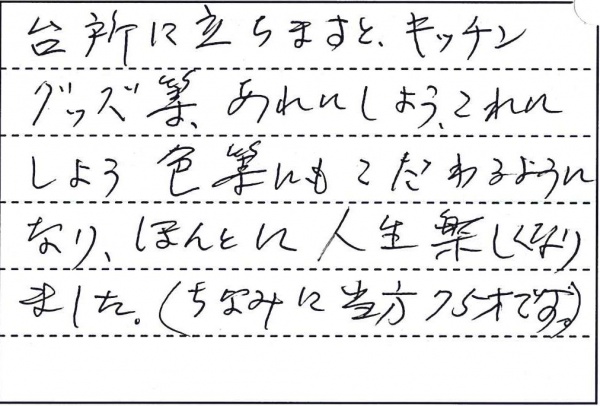 台所に立ちますと、キッチン
グッズ等、あれにしよう、これに
しよう 色等にもこだわるように
なり、ほんとに人生楽しくなり
ました。(ちなみに当方75才です。)